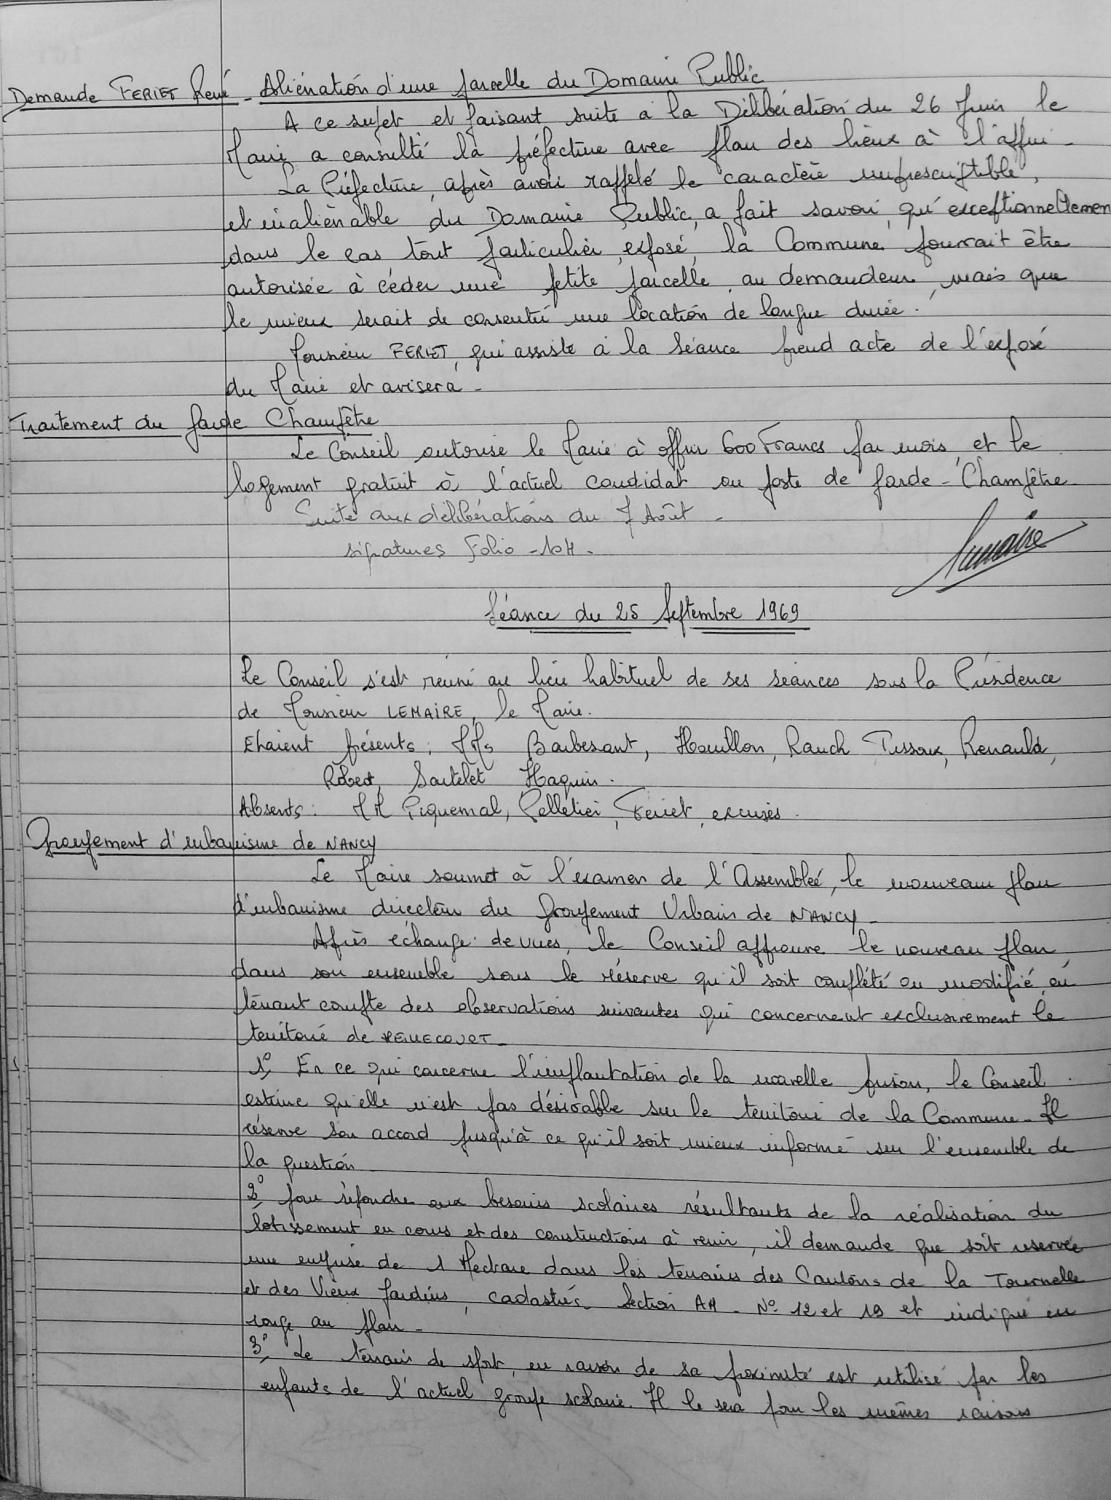 Demande FERIET René - Aliénation d'une parcelle du Domaine Public
A ce sujet et faisant suite à la Délibération du 26 Juin, le
Maire a consulté la préfecture avec plan des lieux à l'appui -
La Préfecture, après avoir rappelé le caractère imprescriptible,
et inaliénable du Domaine Public, a fait savoir qu'exceptionnellement
dans le cas tout particulier exposé, la Commune pourrait être
autorisée à céder une petite parcelle au demandeur, mais que
le mieux serait de consentir une location de longue durée.
Monsieur FERIET, qui assiste à la Séance prend acte de l'exposé
du Maire et avisera -
Traitement du Garde Champêtre
Le Conseil autorise le Maire à offrir 600 Francs par mois, et le
logement gratuit à l'actuel candidat au poste de Garde-Champêtre
Suite aux délibérations du 7 Août -
signatures Folio -104-
Lemaire
Séance du 25 Septembre 1969
Le Conseil s'est réuni au lieu habituel de ses séances sous la Présidence
de Monsieur LEMAIRE, le Maire.
Etaient présents : MMs Barbesant, Houillon, Rauch Tussoux, Renauld,
Robert, Sautelet Haquin.
Absents : MM Piquemal, Pelletier, Feriet, excusés.
Groupement d'urbanisme de NANCY
Le Maire soumet à l'examen de l'Assemblée, le nouveau plan
d'urbanisme directeur du Groupement Urbain de NANCY -
Après echange de vues, le Conseil approuve le nouveau plan
dans son ensemble sous le réserve qu'il soit complété ou modifié en
tenant compte des observations suivantes qui concernent exclusivement le
territoire de REMECOURT -
1°, En ce qui concerne l'implantation de la nouvelle prison, le Conseil
estime qu'elle n'est pas désirable sur le territoire de la Commune - Il
réserve son accord jusqu'à ce qu'il soit mieux informé sur l'ensemble de
la question
2°, pour répondre aux besoins scolaires résultants de la réalisation du
lotissement en cours et des constructions à venir, il demande que soit reservée
une emprise de 1 Hectare dans les terrains des Cantons de la Tournelle
et des Vieux Jardins, cadastrés - Section AH - N° 12 et 19 et indiqué en
rouge au plan -
3°, Le terrain de sport, en raison de sa proximité est utilisé par les
enfants de l'actuel groupe scolaire. Il le sera pour les mêmes raisons